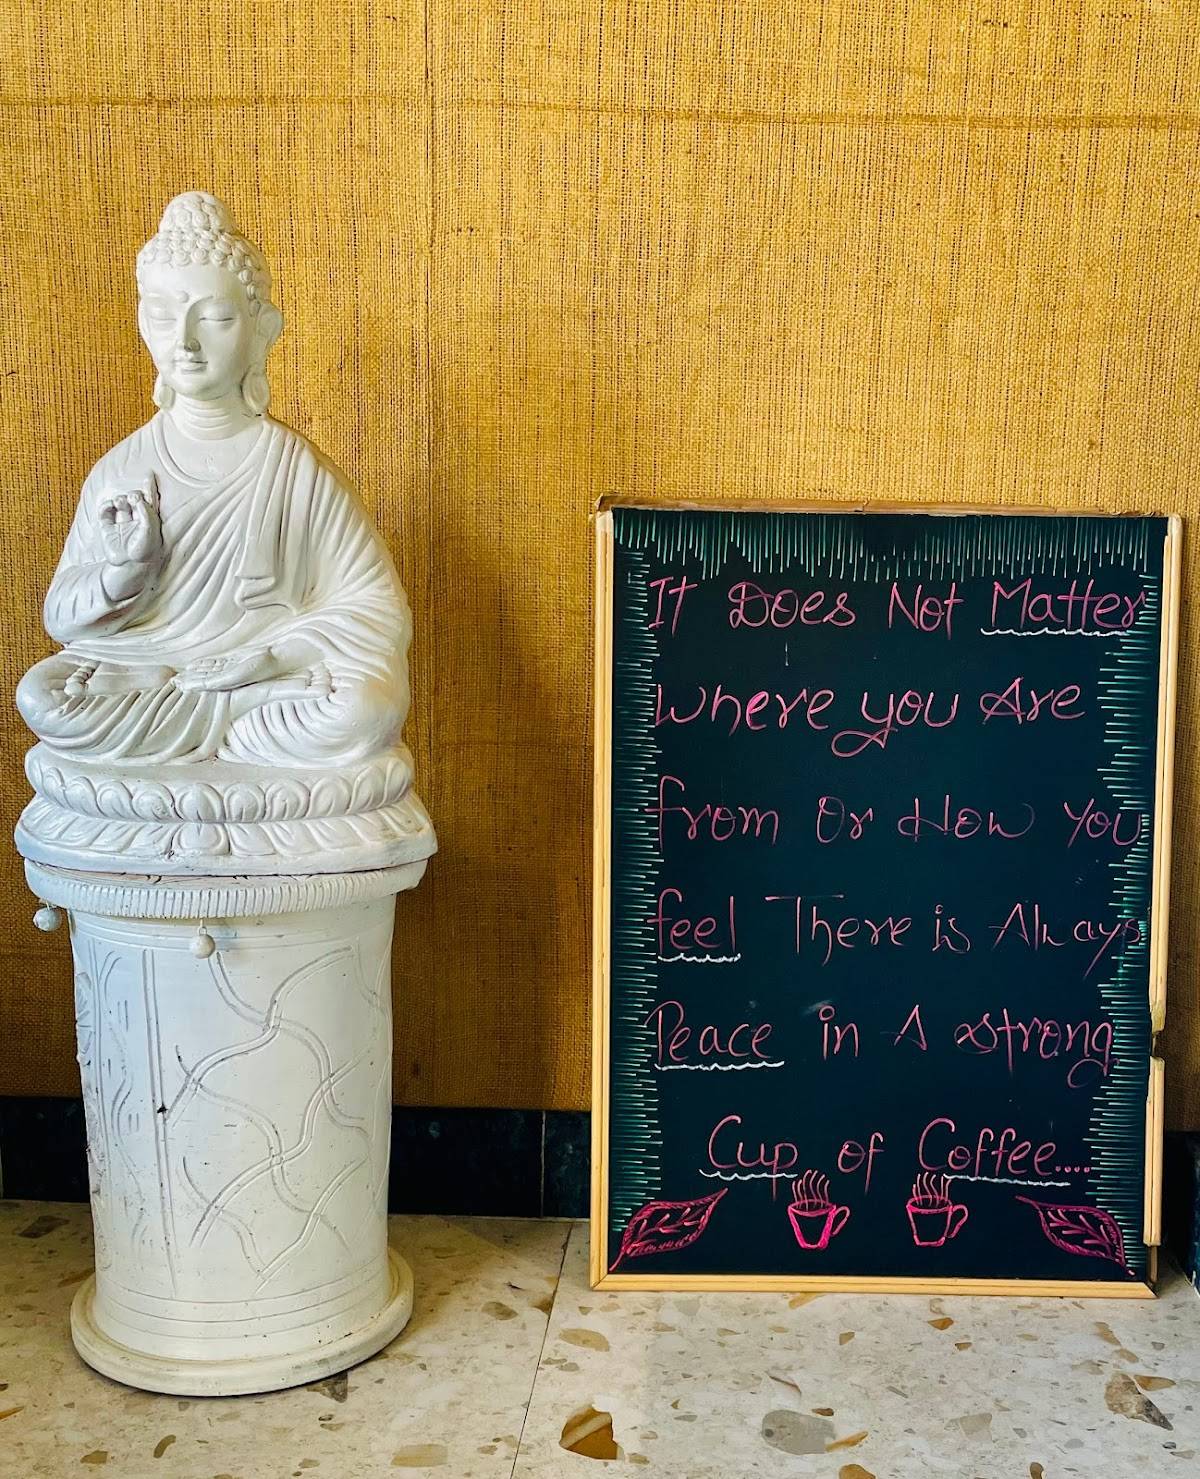 It Does Not Matter
where you Are
from Or How You
feel There is Always
Peace in A strong
Cup of Coffee....